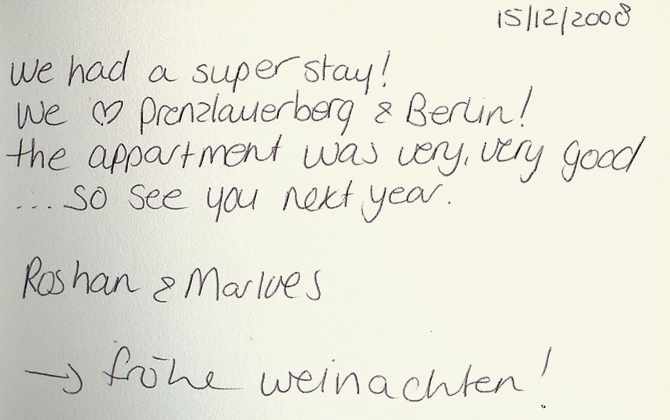 15/12/2008
We had a super stay!
We ♡ Prenzlauerberg & Berlin!
the appartment was very, very good
...so see you next year.
Roshan & Marloes
→ fröhe weinachten!